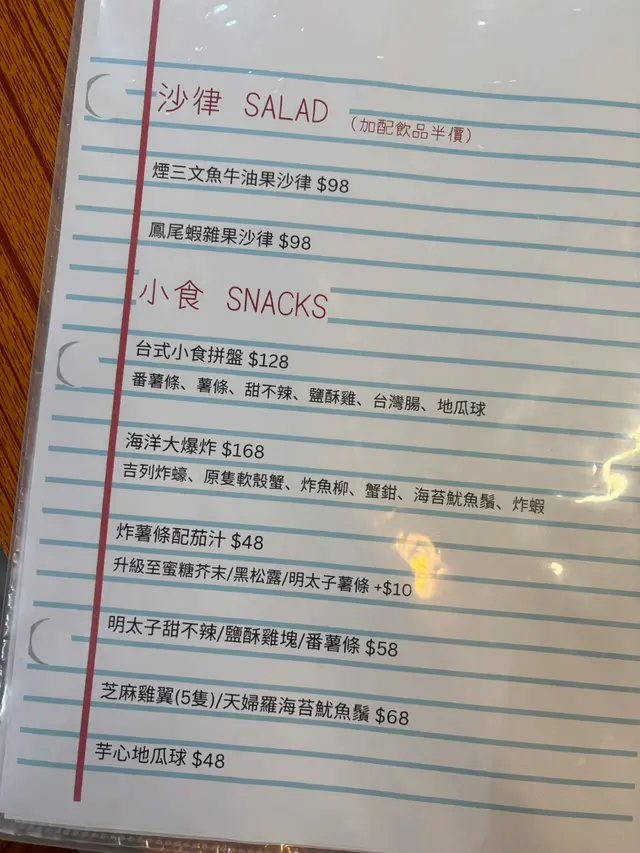 沙律 SALAD (加配飲品半價)
煙三文魚牛油果沙律 $98
鳳尾蝦雜果沙律 $98
小食 SNACKS
台式小食拼盤 $128
番薯條、薯條、甜不辣、鹽酥雞、台灣腸、地瓜球
海洋大爆炸 $168
吉列炸蠔、原隻軟殼蟹、炸魚柳、蟹鉗、海苔魷魚鬚、炸蝦
炸薯條配茄汁 $48
升級至蜜糖芥末/黑松露/明太子薯條 +$10
明太子甜不辣/鹽酥雞塊/番薯條 $58
芝麻雞翼(5隻)/天婦羅海苔魷魚鬚 $68
芋心地瓜球 $48